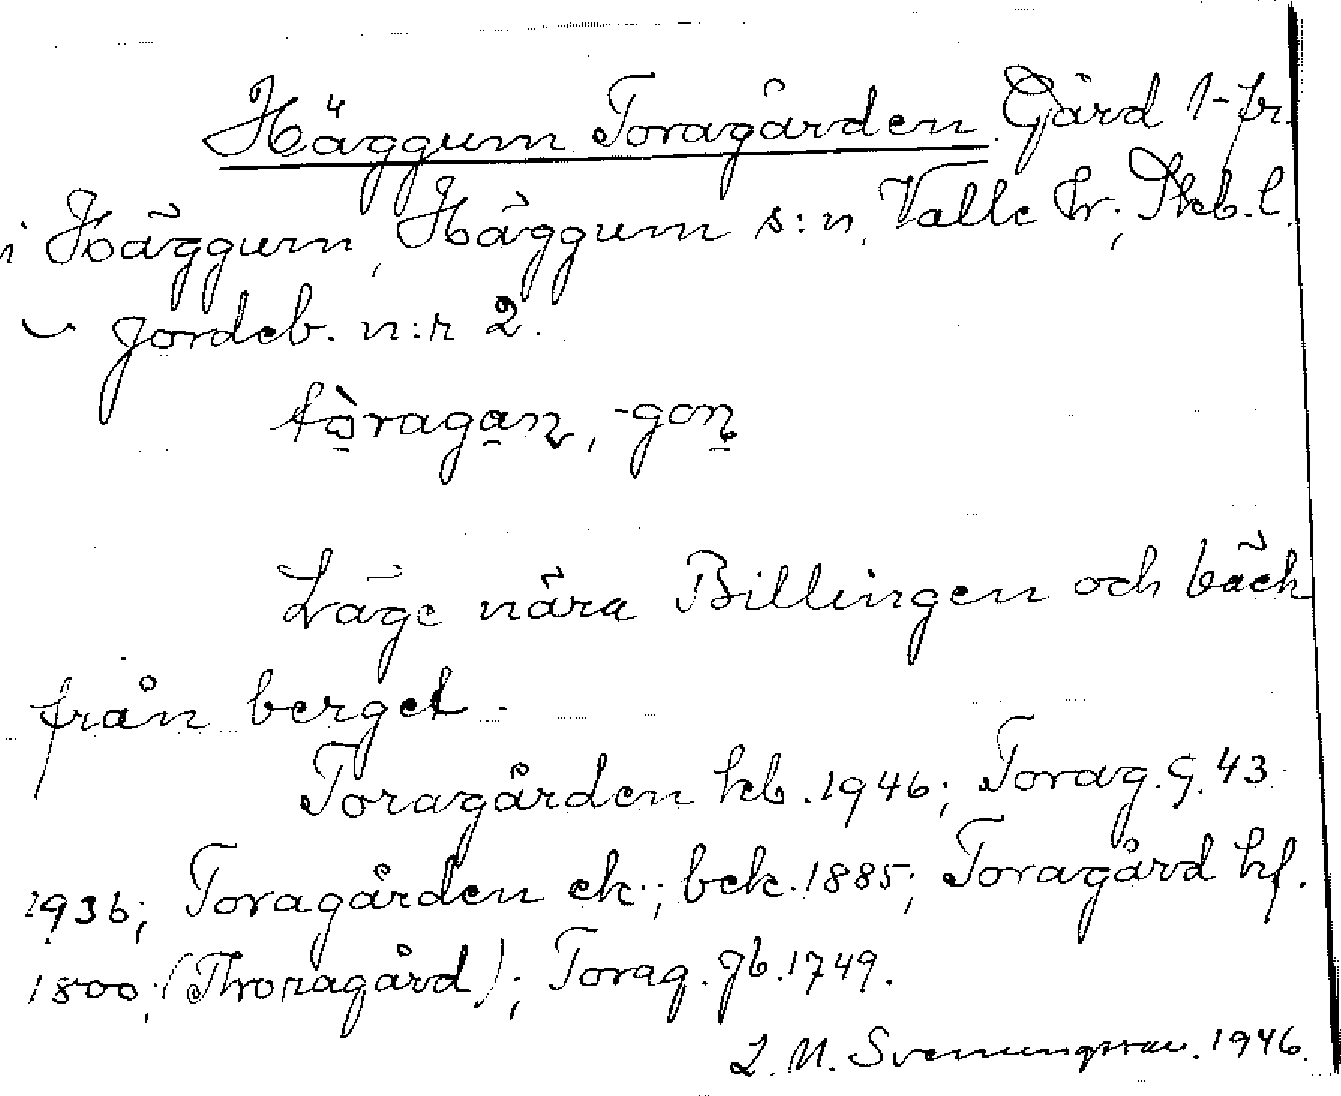 Häggum Toragården. Gård 1-fr.
i Häggum, Häggum s:n, Valle hr; Skb. l.
jordeb. n:r 2.
tòragan, -gon
Läge nära Billingen och bäck
från berget.
Toragården kb. 1946; Torag. G. 43.
1936; Toragården ek.; bek. 1885; Toragård hf.
1800; (Thoragård); Torag. jb. 1749.
L. M. Svenungsson. 1946.